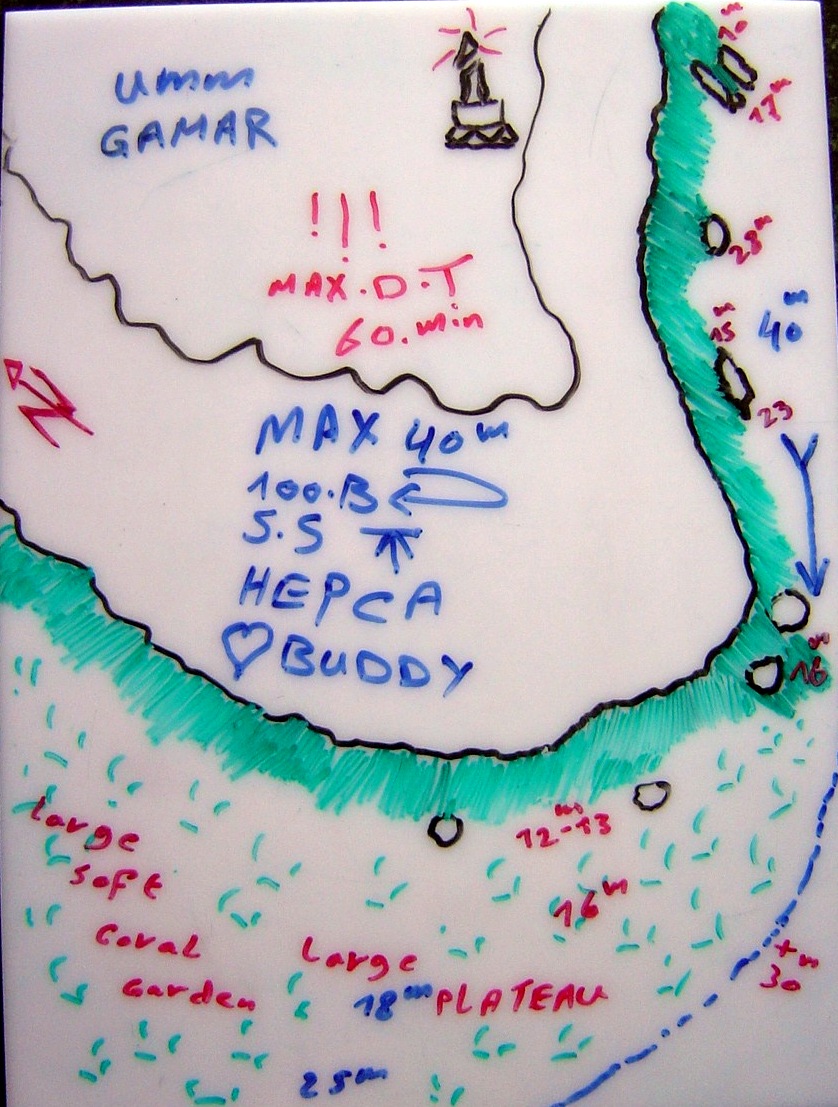 umm
GAMAR
!!!
MAX.D.T
60.min
N
MAX 40m
100.B
S.S
HEPCA
BUDDY
10m
17m
28m
15m
40m
23
16m
12-13m
16m
Large
Soft
Coral
Garden
Large
18m PLATEAU
25m
+30m